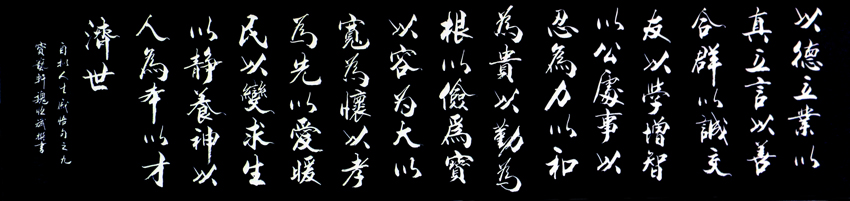 以德立業以
真立言以善
合群以誠交
友以學增智
以公處事以
忍為力以和
為貴以勤為
根以儉為寶
以容为大以
寬為懷以孝
為先以愛暖
民以變求生
以靜養神以
人為本以才
濟世
自撰人生感悟句之九